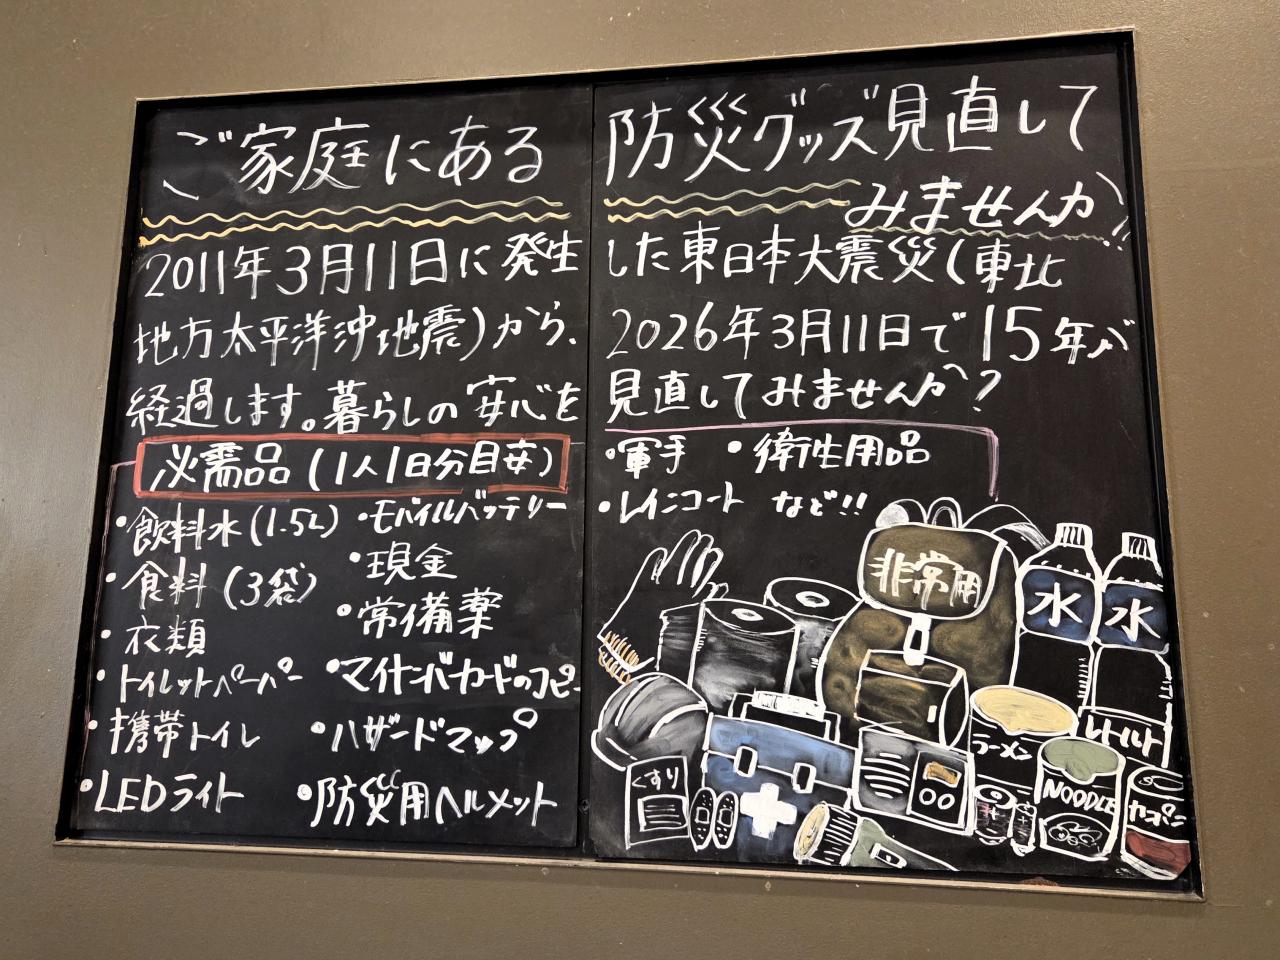 ご家庭にある 防災グッズ見直して
みませんか!!
2011年3月11日に発生した東日本大震災(東北
地方太平洋沖地震)から、2026年3月11日で15年が
経過します。暮らしの安心を見直してみませんか?
必需品(1人1日分目安)
・飲料水(1.5L)
・食料(3袋)
・衣類
・トイレットペーパー
・携帯トイレ
・LEDライト
・モバイルバッテリー
・現金
・常備薬
・マイナンバーカードのコピー
・ハザードマップ
・防災用ヘルメット
・軍手 ・衛生用品
・レインコート など!!
非常用
水
水
ラーメン
レトルト
くすり
NOODLE
カンパン